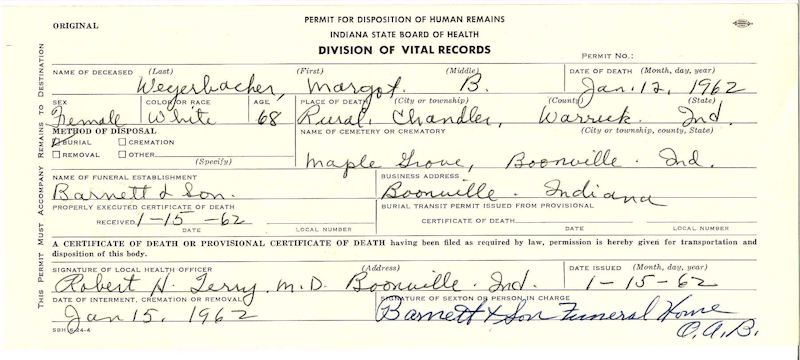 ORIGINAL
PERMIT FOR DISPOSITION OF HUMAN REMAINS
INDIANA STATE BOARD OF HEALTH
DIVISION OF VITAL RECORDS
PERMIT NO.:
THIS PERMIT MUST ACCOMPANY REMAINS TO DESTINATION
NAME OF DECEASED (Last) (First) (Middle) DATE OF DEATH (Month, day, year)
Weyerbacher, Margot. B. Jan. 12, 1962
SEX COLOR OR RACE AGE PLACE OF DEATH (City or township) (County) (State)
Female White 68 Rural, Chandler, Warrick Ind.
METHOD OF DISPOSAL NAME OF CEMETERY OR CREMATORY (City or township, county, State)
BURIAL CREMATION
REMOVAL OTHER
(Specify)
Maple Grove, Boonville. Ind.
NAME OF FUNERAL ESTABLISHMENT BUSINESS ADDRESS
Barnett & Son. Boonville. Indiana
PROPERLY EXECUTED CERTIFICATE OF DEATH BURIAL TRANSIT PERMIT ISSUED FROM PROVISIONAL
RECEIVED 1-15-62 CERTIFICATE OF DEATH
DATE LOCAL NUMBER DATE LOCAL NUMBER
A CERTIFICATE OF DEATH OR PROVISIONAL CERTIFICATE OF DEATH having been filed as required by law, permission is hereby given for transportation and
disposition of this body.
SIGNATURE OF LOCAL HEALTH OFFICER (Address) DATE ISSUED (Month, day, year)
Robert H. Terry. M.D. Boonville. Ind. 1-15-62
DATE OF INTERMENT, CREMATION OR REMOVAL SIGNATURE OF SEXTON OR PERSON IN CHARGE
Jan 15, 1962 Barnett & Son Funeral Home
C.A.B.
SBH 6-24-4